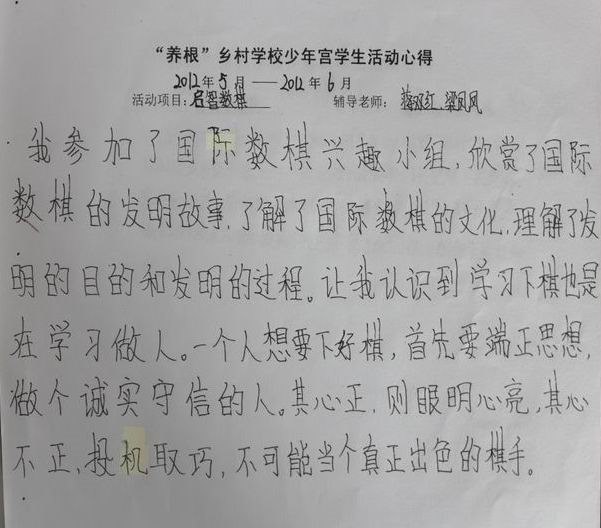 “养根”乡村学校少年宫学生活动心得
2012年5月——2012年6月
活动项目：启智数棋 辅导老师：红 梁凤
我参加了国际数棋兴趣小组，欣赏了国际
数棋的发明故事，了解了国际数棋的文化，理解了发
明的目的和发明的过程。让我认识到学习下棋也是
在学习做人。一个人想要下好棋，首先要端正思想，
做个诚实守信的人。其心正，则眼明心亮，其心
不正，投机取巧，不可能当个真正出色的棋手。